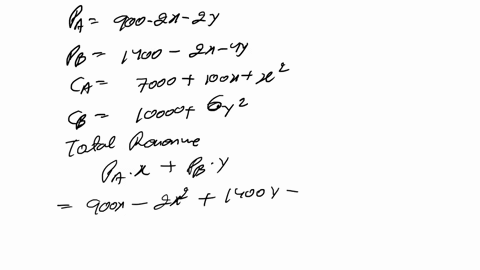 P_A = 900-2x-2y
P_B = 1400-2x-4y
C_A = 7000+100x+x²
C_B = 10000+6y²
Total Revenue
P_A·x + P_B·y
= 900x-2x²+1400y-